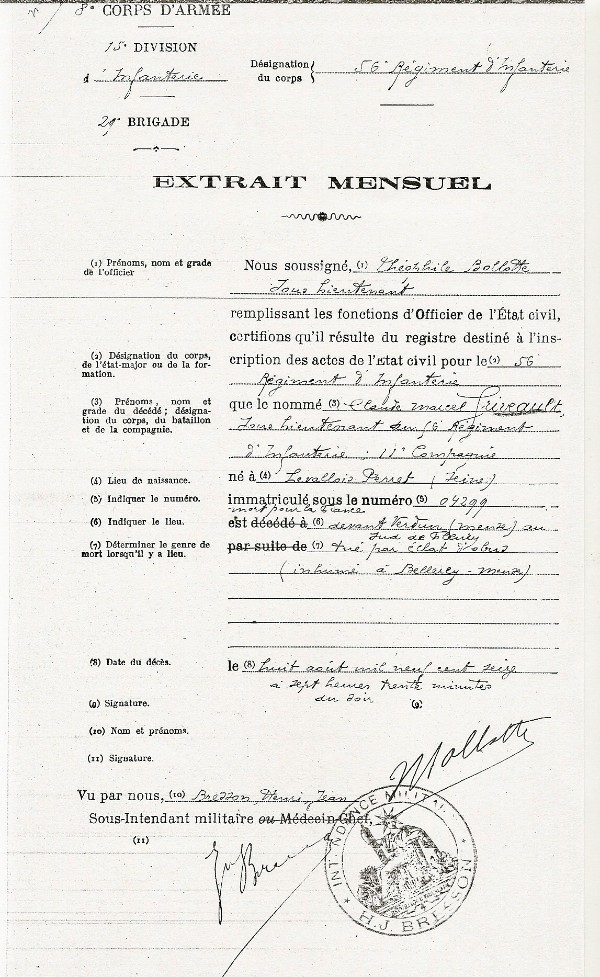 8e CORPS D'ARMÉE
15e DIVISION
d'Infanterie
Désignation du corps { 56e Régiment d'Infanterie
29e BRIGADE
EXTRAIT MENSUEL
(1) Prénoms, nom et grade de l'officier
Nous soussigné, (1) Théophile Bollotte
Sous Lieutenant
remplissant les fonctions d'Officier de l'État civil,
certifions qu'il résulte du registre destiné à l'ins-
(2) Désignation du corps, de l'état-major ou de la formation.
cription des actes de l'état civil pour le (2) 56
Régiment d'Infanterie
(3) Prénoms, nom et grade du décédé; désignation du corps, du bataillon et de la compagnie.
que le nommé (3) Claude Marcel
Sous Lieutenant au 56e Régiment
d'Infanterie : 11e Compagnie
(4) Lieu de naissance.
né à (4) Levallois Perret (Seine)
(5) Indiquer le numéro.
immatriculé sous le numéro (5) 04299
mort pour la France
(6) Indiquer le lieu.
est décédé à (6) devant Verdun (Meuse) au
Sud de Fleury
(7) Déterminer le genre de mort lorsqu'il y a lieu.
par suite de (7) tué par éclat d'obus
(inhumé à Belleray - Meuse)
(8) Date du décès.
le (8) huit août mil neuf cent seize
à sept heures trente minutes
du soir
(9) Signature.
(9)
(10) Nom et prénoms.
(11) Signature.
Bollotte
Vu par nous, (10) Bresson Henri Jean
Sous-Intendant militaire ou Médecin Chef,
(11)
INTENDANCE MILITAIRE
H.J. BRESSON